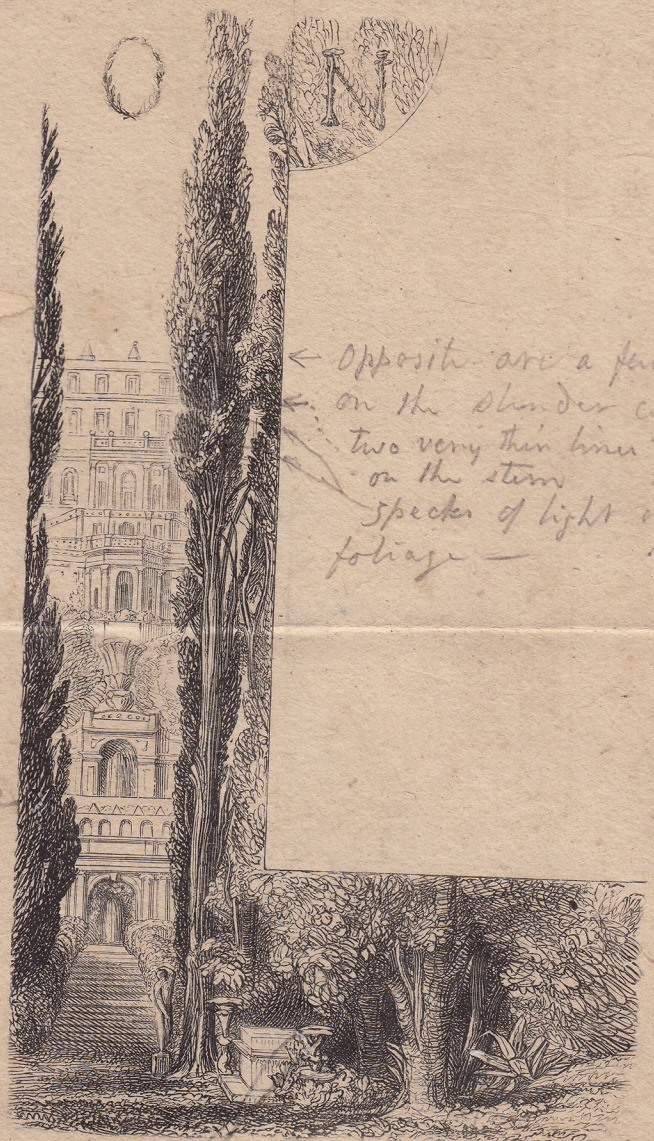 O N
← Opposite are a few
on the slender
two very thin lines
on the stem
specks of light
foliage —